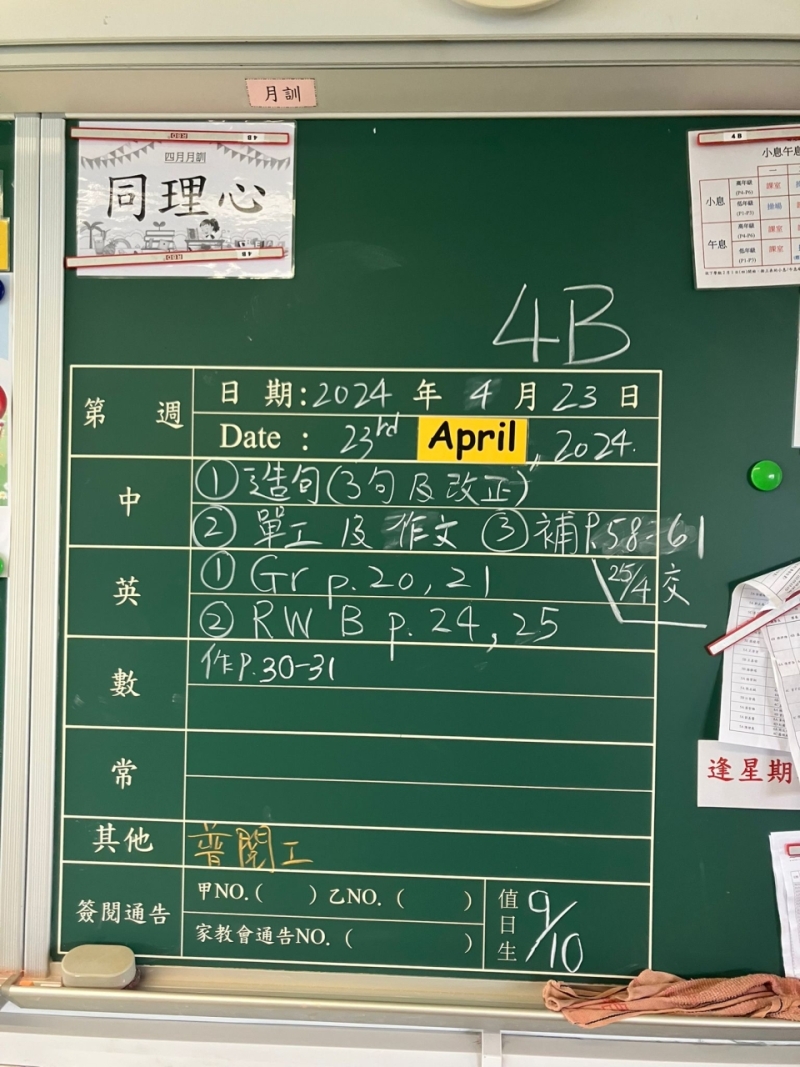 月訓
四月月訓
同理心
4B
小息午息
一
小息
高年級
(P4-P6)
課室
低年級
(P1-P3)
操場
午息
高年級
(P4-P6)
課室
低年級
(P1-P3)
課室
4B
第 週
日 期:2024 年 4 月 23 日
Date : 23rd April, 2024.
中
①造句(3句及改正)
② 單工 及 作文 ③補P.58-61
英
① Gr p.20,21
25/4 交
② RW B p.24,25
數
作P.30-31
常
其他
普閱工
簽閱通告
甲NO.( )乙NO.( )
家教會通告NO.( )
值日生
9/10
逢星期